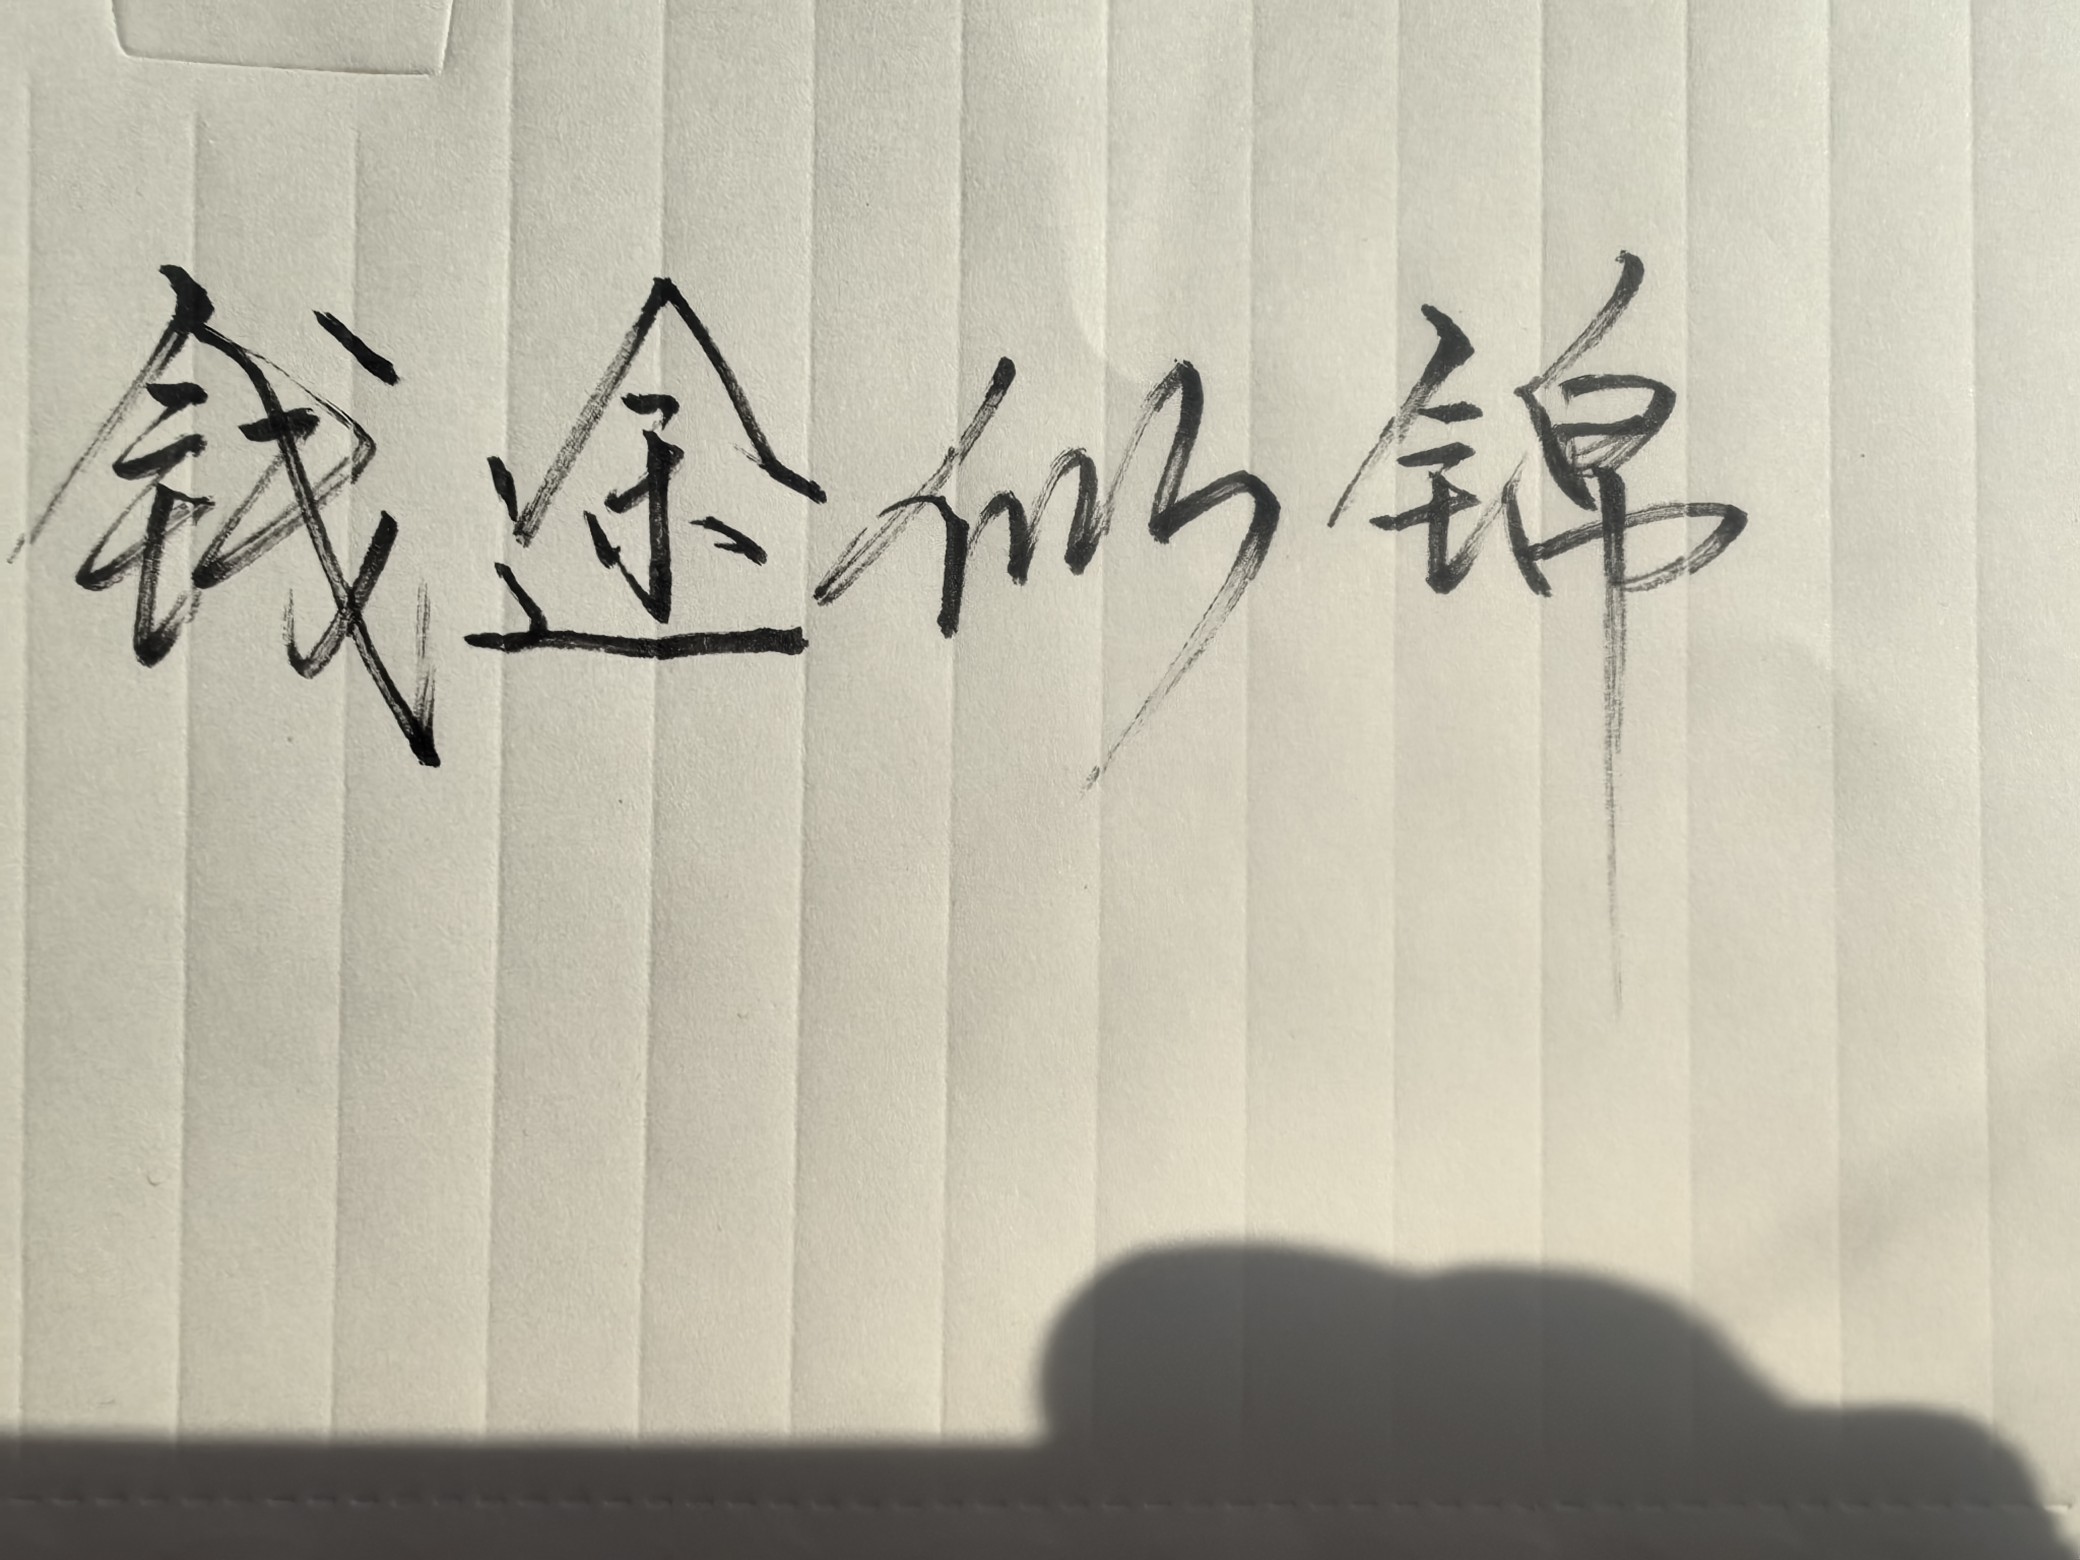 钱途似锦